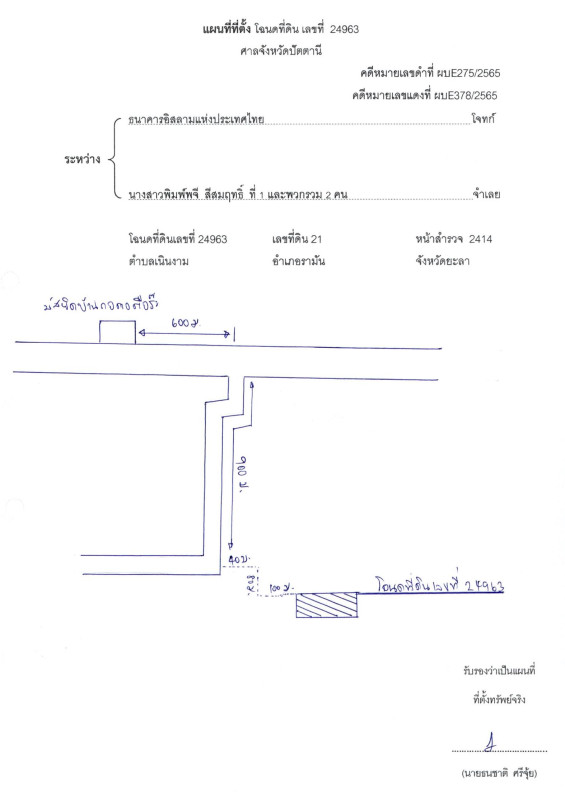 แผนที่ที่ตั้ง โฉนดที่ดิน เลขที่ 24963
ศาลจังหวัดปัตตานี
คดีหมายเลขดำที่ ผบE275/2565
คดีหมายเลขแดงที่ ผบE378/2565
ธนาคารอิสลามแห่งประเทศไทย โจทก์
ระหว่าง
นางสาวพิมพ์พจี สีสมฤทธิ์ ที่ 1 และพวกรวม 2 คน จำเลย
โฉนดที่ดินเลขที่ 24963 เลขที่ดิน 21 หน้าสำรวจ 2414
ตำบลเนินงาม อำเภอรามัน จังหวัดยะลา
600 ม.
900 ม.
40 ม.
100 ม.
โฉนดที่ดินเลขที่ 24963
รับรองว่าเป็นแผนที่
ที่ตั้งทรัพย์จริง
(นายธนชาติ ศรีจุ้ย)